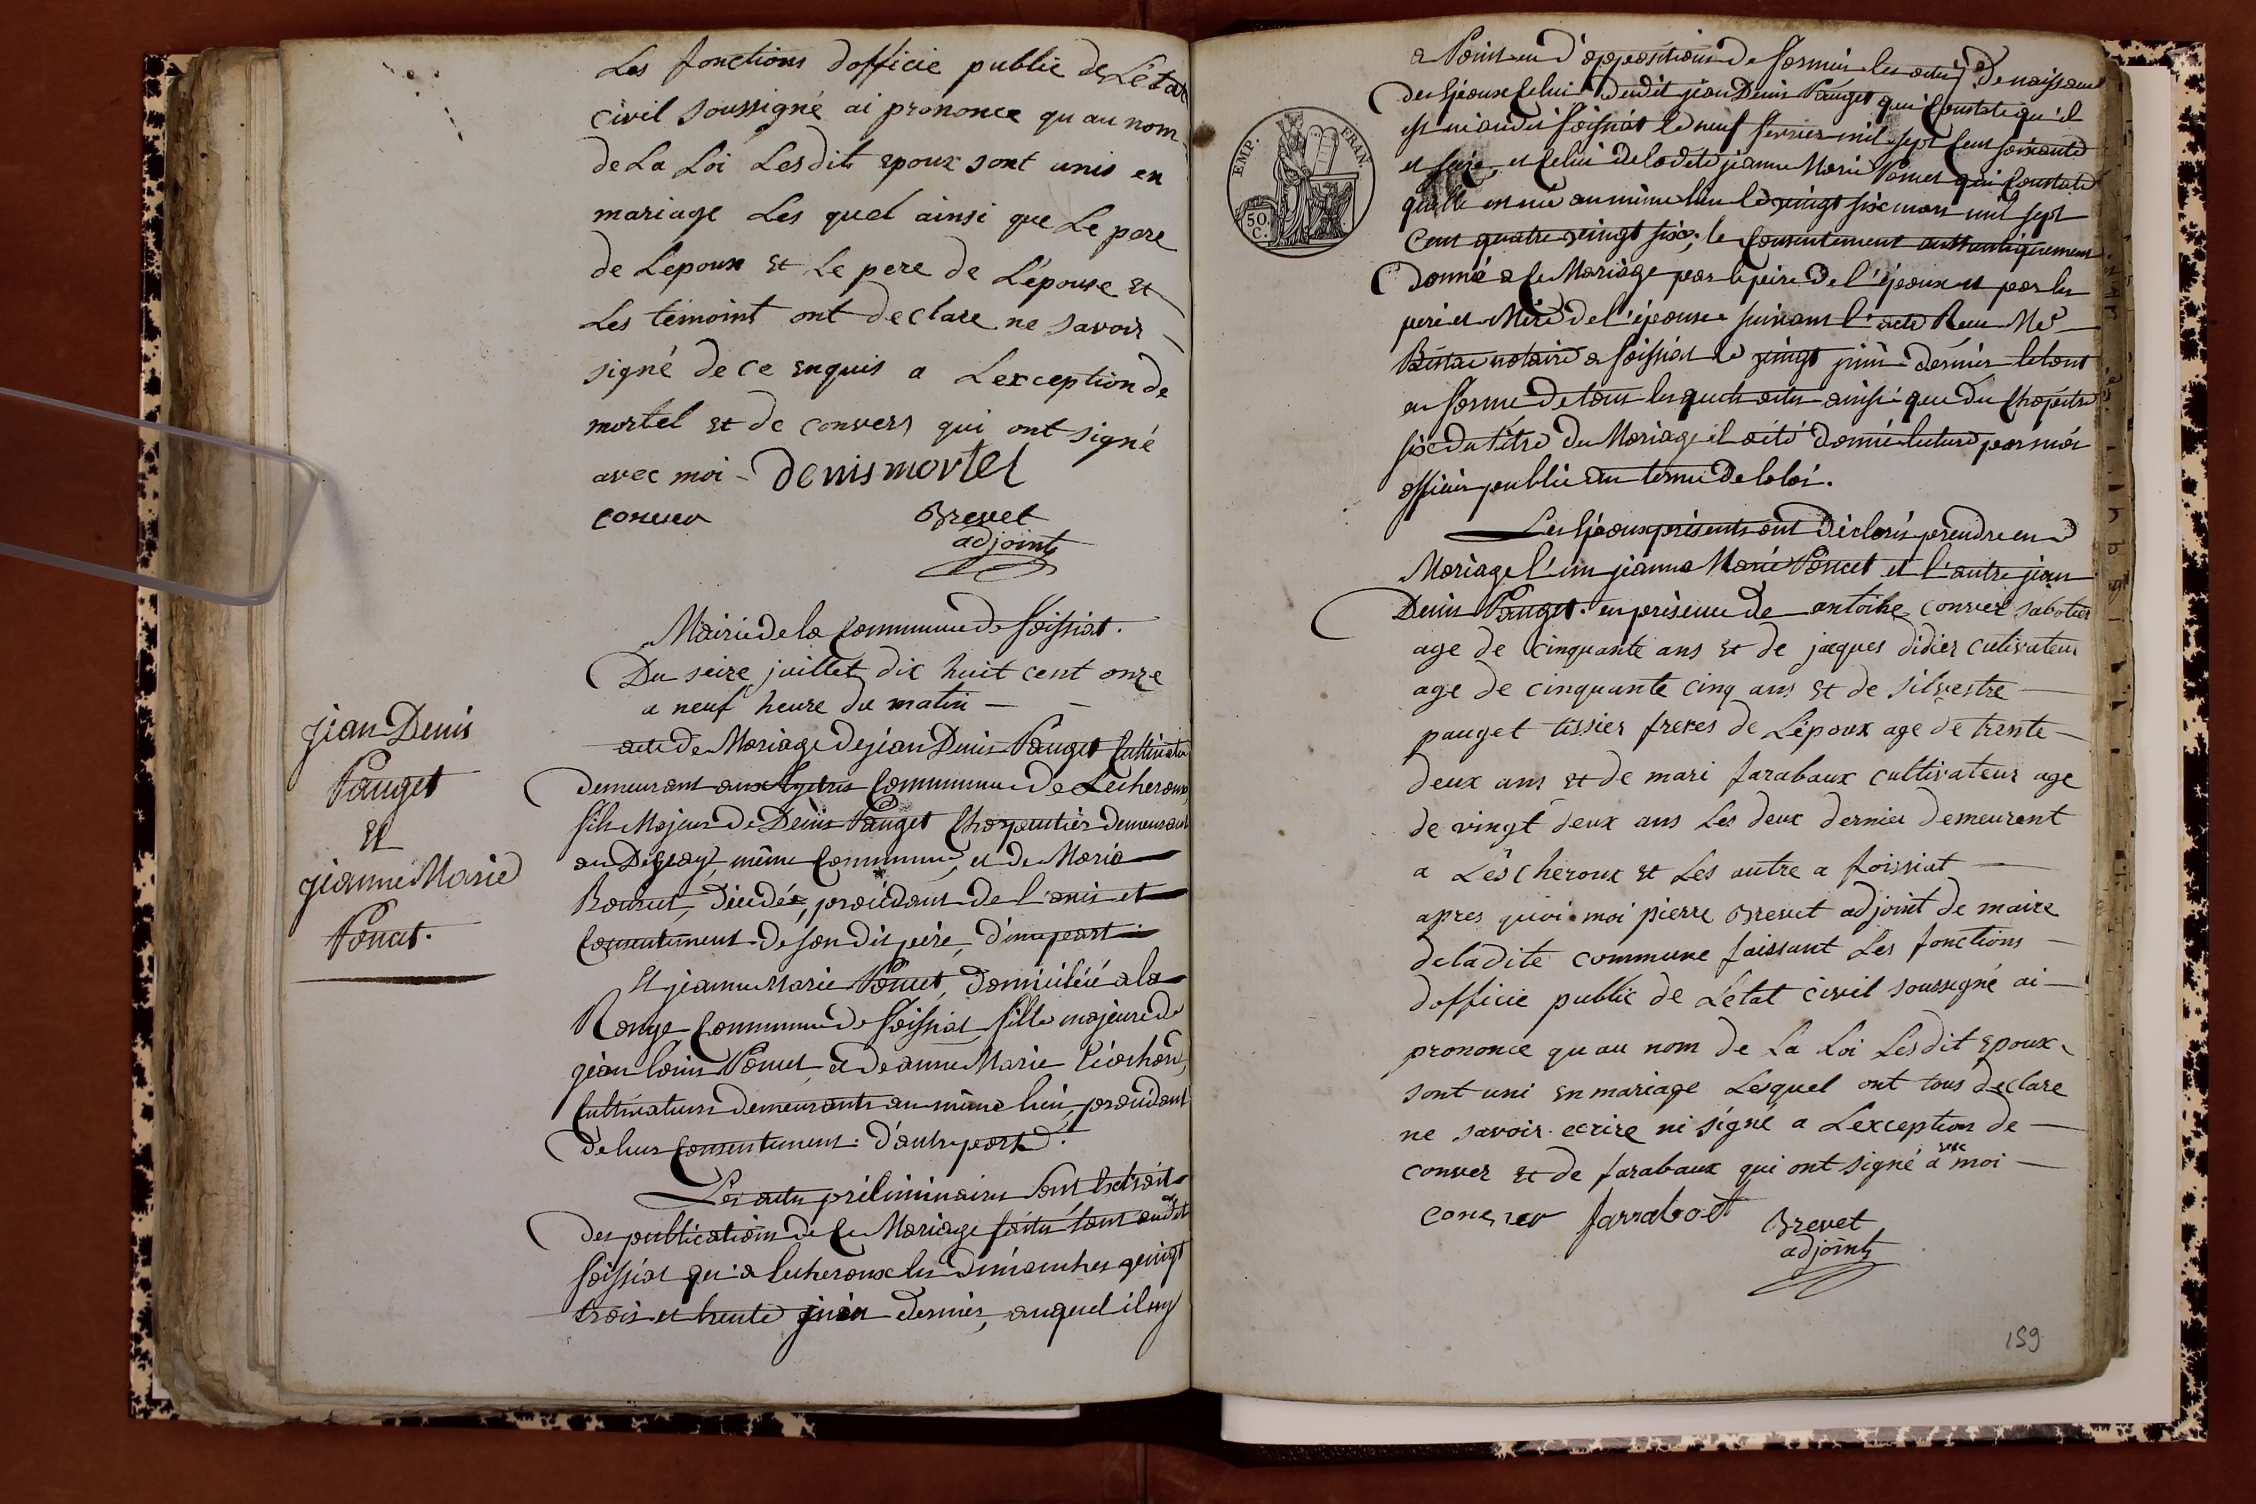 Les fonctions dofficie public de Létat
civil soussigné ai prononce qu au nom
de La Loi Lesdits epoux sont unis en
mariage Les quel ainsi que Le pere
de Lepoux et Le pere de Lépouse et
Les témoint ont declare ne savoir
signé de ce enquis a Lexception de
mortel et de convers qui ont signé
avec moi - denis mortel
conver Brevet
adjoint
Mairie de la Commune de foissiat.
Du seize juillet dix huit cent onze
a neuf heure du matin
jean Denis
Pauget
Et
jeanne Marie
Poncet.
acte de Mariage de jean Denis Pauget Cultivateur
demeurant aux Commune de Lecheroux,
fils Majeur de Denis Pauget Charpentier demeurant
au même Commune, et de Marie
décédée, procédant de l'avis et
Consentement de son dit père, d'une part
Et jeanne Marie Poncet, domiciliée à la
Ronge Commune de foissiat fille majeure de
jean Louis Poncet et de anne Marie
Cultivateurs demeurants au même lieu, procédant
de leur Consentement. d'autre part.
Les actes préliminaires sont Extrait
des publications de Ce Mariage faites tant audit
foissiat qu'a lecheroux les dimanches vingt
trois et trente juin dernier, auquel il ny
EMP. FRAN.
50 C.
a Point eu d'oppositions de formées les actes de naissance
des Epoux Celui dudit jean Denis Pauget qui Constate qu'il
est né audit foissiat le neuf fevrier mil sept Cent soixante
et seize, et Celui de ladite jeanne Marie Poncet qui Constate
quelle est née au même lieu le vingt six mars mil sept
Cent quatre vingt six, le Consentement authentiquement
donné a Ce Mariage par le père de l'époux et par les
père et Mère de l'épouse suivant l'acte Reçu Me
notaire a foissiat le vingt juin dernier le tout
en forme de tous lesquels actes ainsi que du Chapitre
six du titre du Mariage il a été donné lecture par moi
officier public aux termes de la loi.
Les Epoux présents ont déclarés prendre en
Mariage l'un jeanne Marie Poncet et l'autre jean
Denis Pauget. en présence de antoine conver sabotier
age de cinquante ans et de jacques didier cutivateur
age de cinquante cinq ans et de silvestre
pauget tissier freres de Lépoux age de trente
deux ans et de mari farabaux cultivateur age
de vingt deux ans Les deux dernier demeurent
a Lescheroux et Les autre a foissiat
apres quoi moi pierre Brevet adjoint de maire
de ladite commune faissant Les fonctions
dofficie public de Létat civil soussigné ai
prononce qu au nom de La Loi Lesdit epoux
sont uni en mariage Lesquel ont tous declare
ne savoir ecrire ni signé a Lexception de
conver et de farabaux qui ont signé avec moi
conver farrabost Brevet
adjoint
159